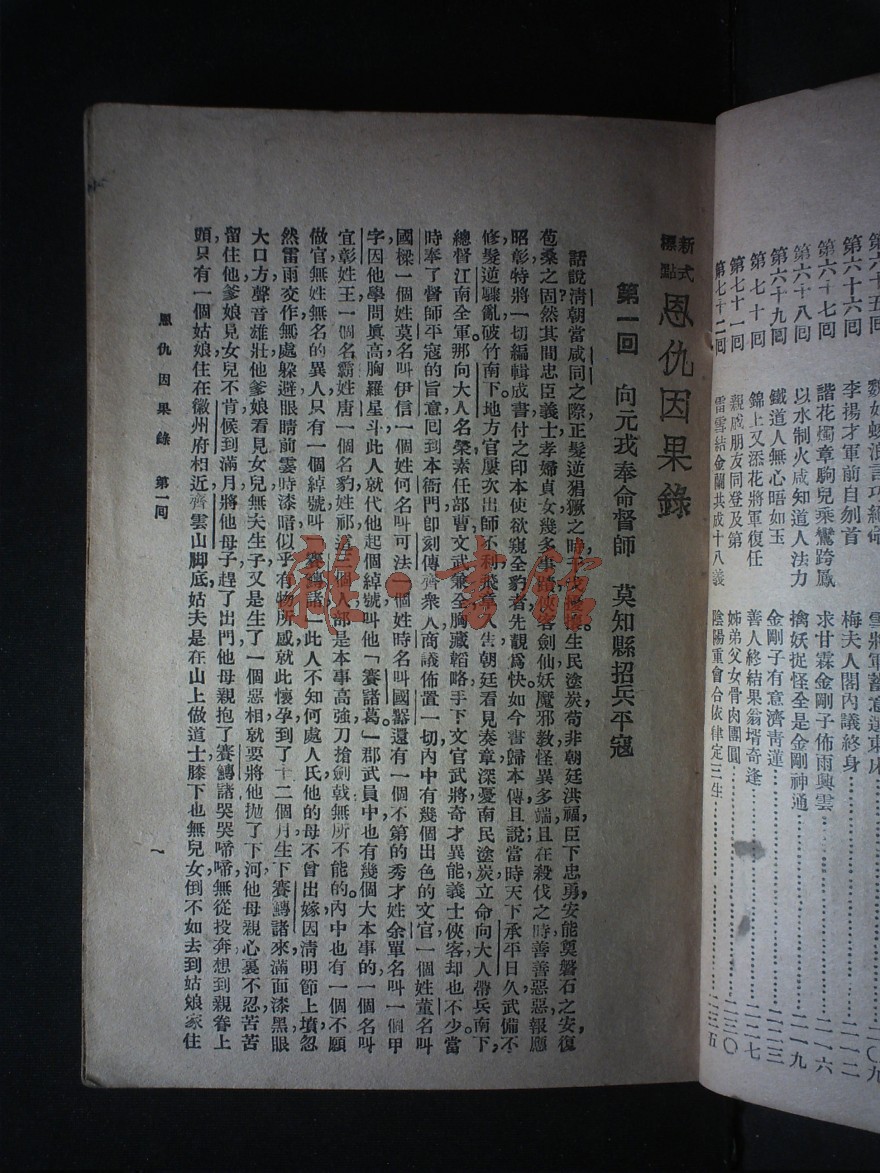 第六十五回
第六十六回 李揚才軍前自刎首 梅夫人閣內議終身……二一二
第六十七回 諧花燭章駒兒乘鸞跨鳳 求甘霖金剛子佈雨興雲……二一六
第六十八回 以水制火咸知道人法力 擒妖捉怪全是金剛神通……二一九
第六十九回 鐵道人無心晤如玉 金剛子有意濟青蓮……二二三
第七十回 錦上又添花將軍復任 善人終結果翁壻奇逢……二二七
第七十一回 親戚朋友同登及第 姊弟父女骨肉團圓……二三〇
第七十二回 雷雪結金蘭共成十八義 陰陽重會合依律定三生……二三五
新式標點 恩仇因果錄
第一回 向元戎奉命督師 莫知縣招兵平寇
話說清朝當咸同之際，正髮逆猖獗之時，生民塗炭，苟非朝廷洪福，臣下忠勇，安能奠磐石之安，復
苞桑之固？然其間忠臣義士，孝婦貞女，幾多事蹟，俠客劍仙，妖魔邪教，怪異多端；且在殺伐之時，善善惡惡，報應
昭彰，特將一切編輯成書，付之印本，使欲窺全豹者，先覩爲快。如今書歸本傳，且說當時天下承平日久，武備不
修，髮逆驟亂，破竹南下，地方官屢次出師不利，飛章入告，朝廷看見奏章，深憂南民塗炭，立命向大人帶兵南下，
總督江南全軍。那向大人名榮，素任部曹，文武兼全，胸藏韜略，手下文官武將，奇才異能，義士俠客，却也不少。當
時奉了督師平寇的旨意，回到本衙門，卽刻傳齊衆人，商議佈置一切。內中有幾個出色的文官，一個姓董名叫
國樑，一個姓莫名叫伊信，一個姓何名叫可法，一個姓時名叫國器，還有一個不第的秀才，姓余單名叫一個甲
字，因他學問眞高，胸羅星斗，此人就代他起個綽號，叫他「賽諸葛」。一郡武員中，也有幾個大本事的，一個名叫
宜彰姓王，一個名霸姓唐，一個名豹姓祁，這三個人都是本事高強，刀搶劍戟，無所不能的。內中也有一個不願
做官無姓無名的異人，只有一個綽號叫「賽鱄諸」，此人不知何處人氏，他的母不曾出嫁，因清明節上墳，忽
然雷雨交作，無處躲避，眼睛前雲時漆暗，似乎有物所感，就此懷孕，到了十二個月，生下賽鱄諸來，滿面漆黑，眼
大口方，聲音雄壯，他爹娘看見女兒無夫生子，又是生了一個惡相，就要將他拋了下河，他母親心裏不忍，苦苦
留住，他爹娘見女兒不肯，候到滿月，將他母子趕了出門，他母親抱了賽鱄諸，哭哭啼啼，無從投奔，想到親眷上
頭，只有一個姑娘，住在徽州府相近齊雲山脚底，姑夫是在山上做道士，膝下也無兒女，倒不如去到姑娘家住
恩仇因果錄 第一回
一
雜·書館